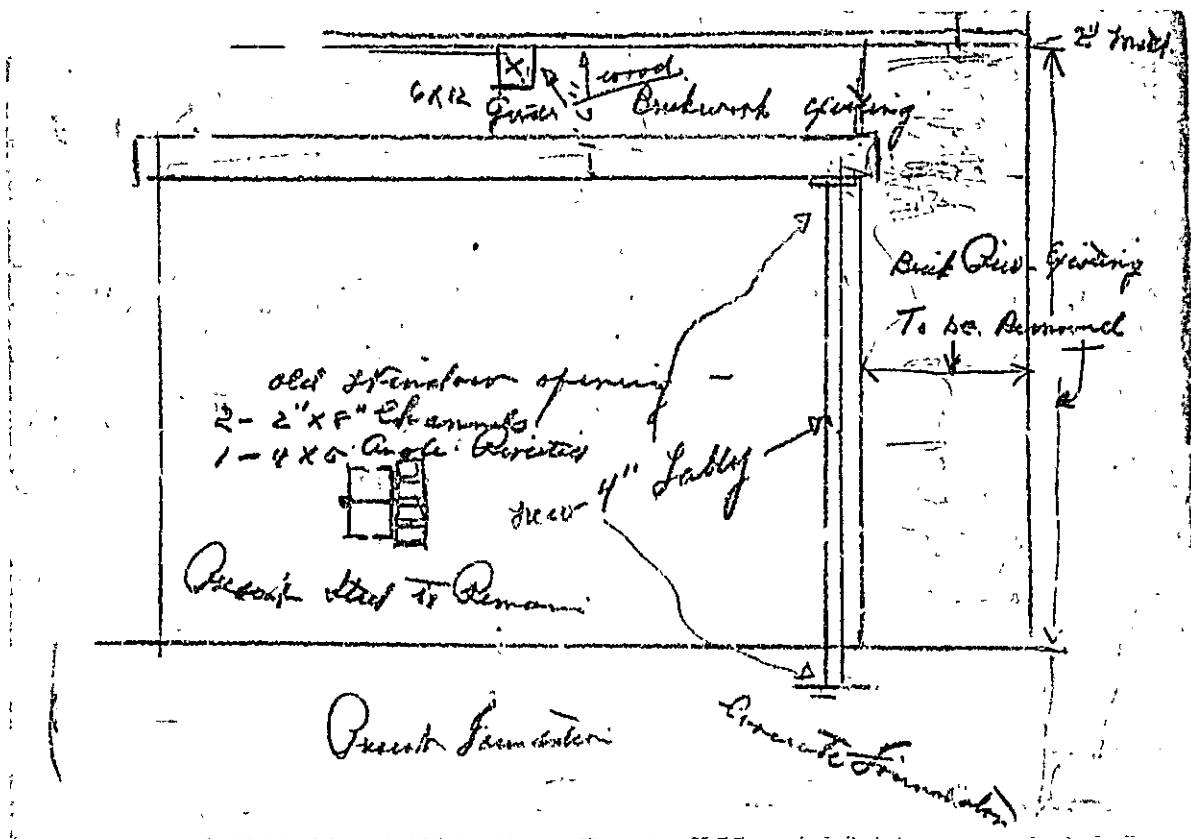 2"
wood
6X12 Girder Brickwork existing
X
Brick Pier - Existing
To be Removed
old Window opening -
2 - 2" X 8" Channels
1 - 4 X 6 Angle Riveted
new 4" Lally
Present Steel to Remain
Present Foundation
Concrete Foundation